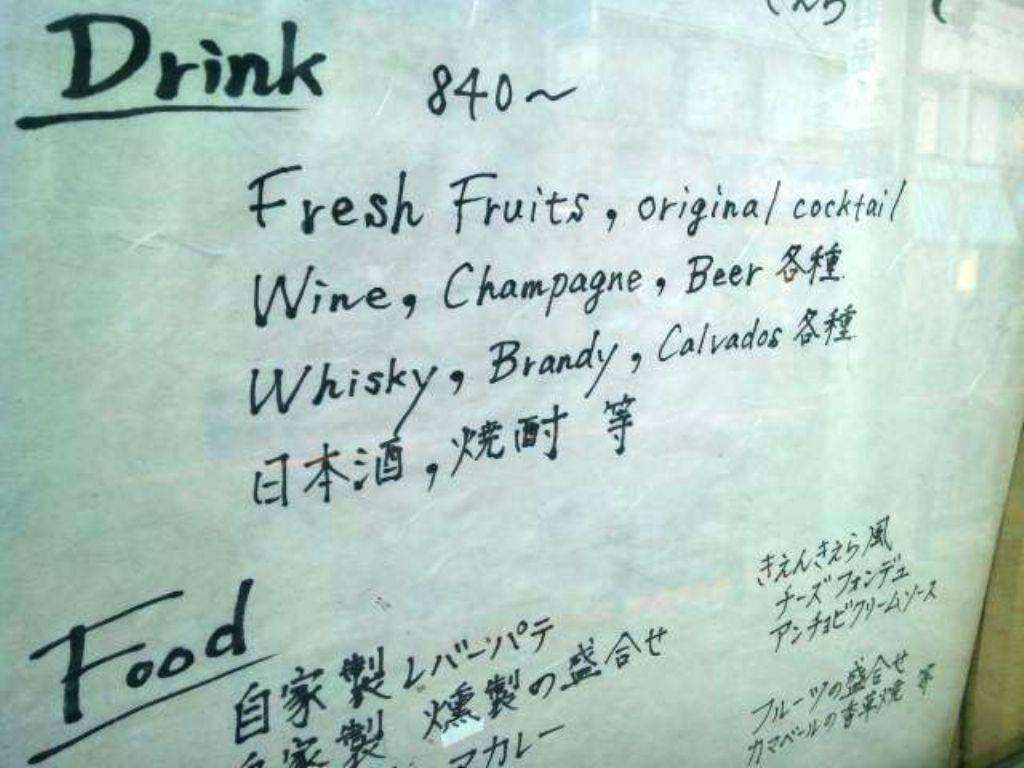 Drink 840～
Fresh Fruits, original cocktail
Wine, Champagne, Beer 各種
Whisky, Brandy, Calvados 各種
日本酒, 焼酎 等
Food
自家製レバーパテ
自家製 燻製の盛合せ
カレー
きえんきえら風
チーズフォンデュ
アンチョビクリームソース
フルーツの盛合せ
カマベールの香草焼 等